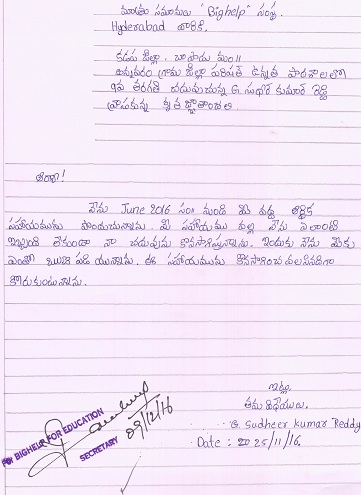 మహా సమానులు "Bighelp" సంస్థ.
Hyderabad వారికి.
కడప జిల్లా, చాపాడు మం॥
గ్రామ జిల్లా పరిషత్ ఉన్నత పాఠశాలలో
9వ తరగతి చదువుచున్న G. సుధీర్ కుమార్ రెడ్డి
వ్రాసుకున్న కృతజ్ఞతాంజలి.
ఆర్యా!
నేను June 2016 సం॥ నుండి మీ వద్ద ఆర్థిక
సహాయమును పొందుచున్నాను. మీ సహాయము వల్ల నేను ఎలాంటి
ఇబ్బంది లేకుండా నా చదువును కొనసాగిస్తున్నాను. ఇందుకు నేను మీకు
ఎంతో ఋణపడి యున్నాను. ఈ సహాయమును కొనసాగించ వలసినదిగా
కోరుకుంటున్నాను.
ఇట్లు,
తమ విధేయులు.
G. Sudheer kumar Reddy
Date : 25/11/16.
For BIGHELP FOR EDUCATION
SECRETARY
09/12/16